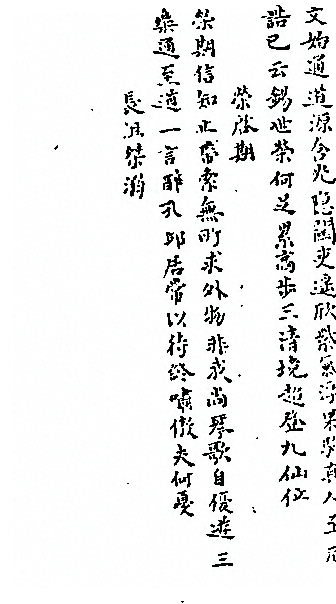 文始通道源含光隱關吏遙欣紫氣浮果驗真人至元
誥已云錫世榮何足累高步三清境超登九仙位
榮啟期
榮期信知止帶索無所求外物非我尚琴歌自優遊三
樂通至道一言醉孔邱居常以待終嘯傲夫何憂
長沮桀溺